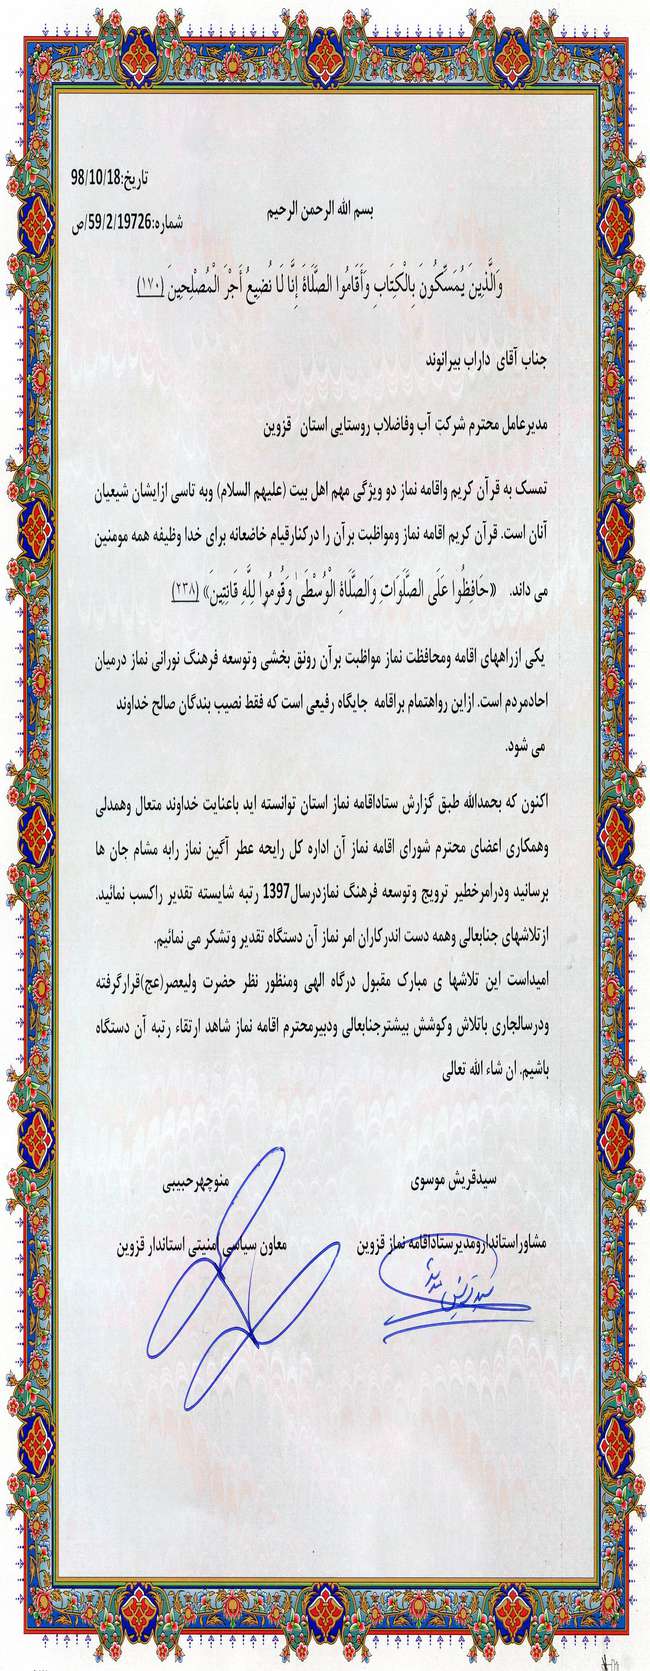 تاریخ:98/10/18
بسم الله الرحمن الرحیم
شماره:59/2/19726/ص
وَالَّذِينَ يُمَسِّكُونَ بِالْكِتَابِ وَأَقَامُوا الصَّلَاةَ إِنَّا لَا نُضِيعُ أَجْرَ الْمُصْلِحِينَ (١٧٠)
جناب آقای داراب بیرانوند
مدیرعامل محترم شرکت آب وفاضلاب روستایی استان قزوین
تمسک به قرآن کریم واقامه نماز دو ویژگی مهم اهل بیت (علیهم السلام) وبه تاسی ازایشان شیعیان
آنان است. قرآن کریم اقامه نماز ومواظبت برآن را درکنارقیام خاضعانه برای خدا وظیفه همه مومنین
می داند. «حَافِظُوا عَلَى الصَّلَوَاتِ وَالصَّلَاةِ الْوُسْطَى وَقُومُوا لِلَّهِ قَانِتِينَ» (٢٣٨)
یکی ازراههای اقامه ومحافظت نماز مواظبت برآن رونق بخشی وتوسعه فرهنگ نورانی نماز درمیان
احادمردم است. ازاین رواهتمام براقامه جایگاه رفیعی است که فقط نصیب بندگان صالح خداوند
می شود.
اکنون که بحمدالله طبق گزارش ستاداقامه نماز استان توانسته اید باعنایت خداوند متعال وهمدلی
وهمکاری اعضای محترم شورای اقامه نماز آن اداره کل رایحه عطر آگین نماز رابه مشام جان ها
برسانید ودرامرخطیر ترویج وتوسعه فرهنگ نمازدرسال1397 رتبه شایسته تقدیر راکسب نمائید.
ازتلاشهای جنابعالی وهمه دست اندرکاران امر نماز آن دستگاه تقدیر وتشکر می نمائیم.
امیداست این تلاشها ی مبارک مقبول درگاه الهی ومنظور نظر حضرت ولیعصر(عج)قرارگرفته
ودرسالجاری باتلاش وکوشش بیشترجنابعالی ودبیرمحترم اقامه نماز شاهد ارتقاء رتبه آن دستگاه
باشیم. ان شاء الله تعالی
سیدقریش موسوی
منوچهرحبیبی
مشاوراستاندارومدیرستاداقامه نماز قزوین
معاون سیاسی امنیتی استاندار قزوین